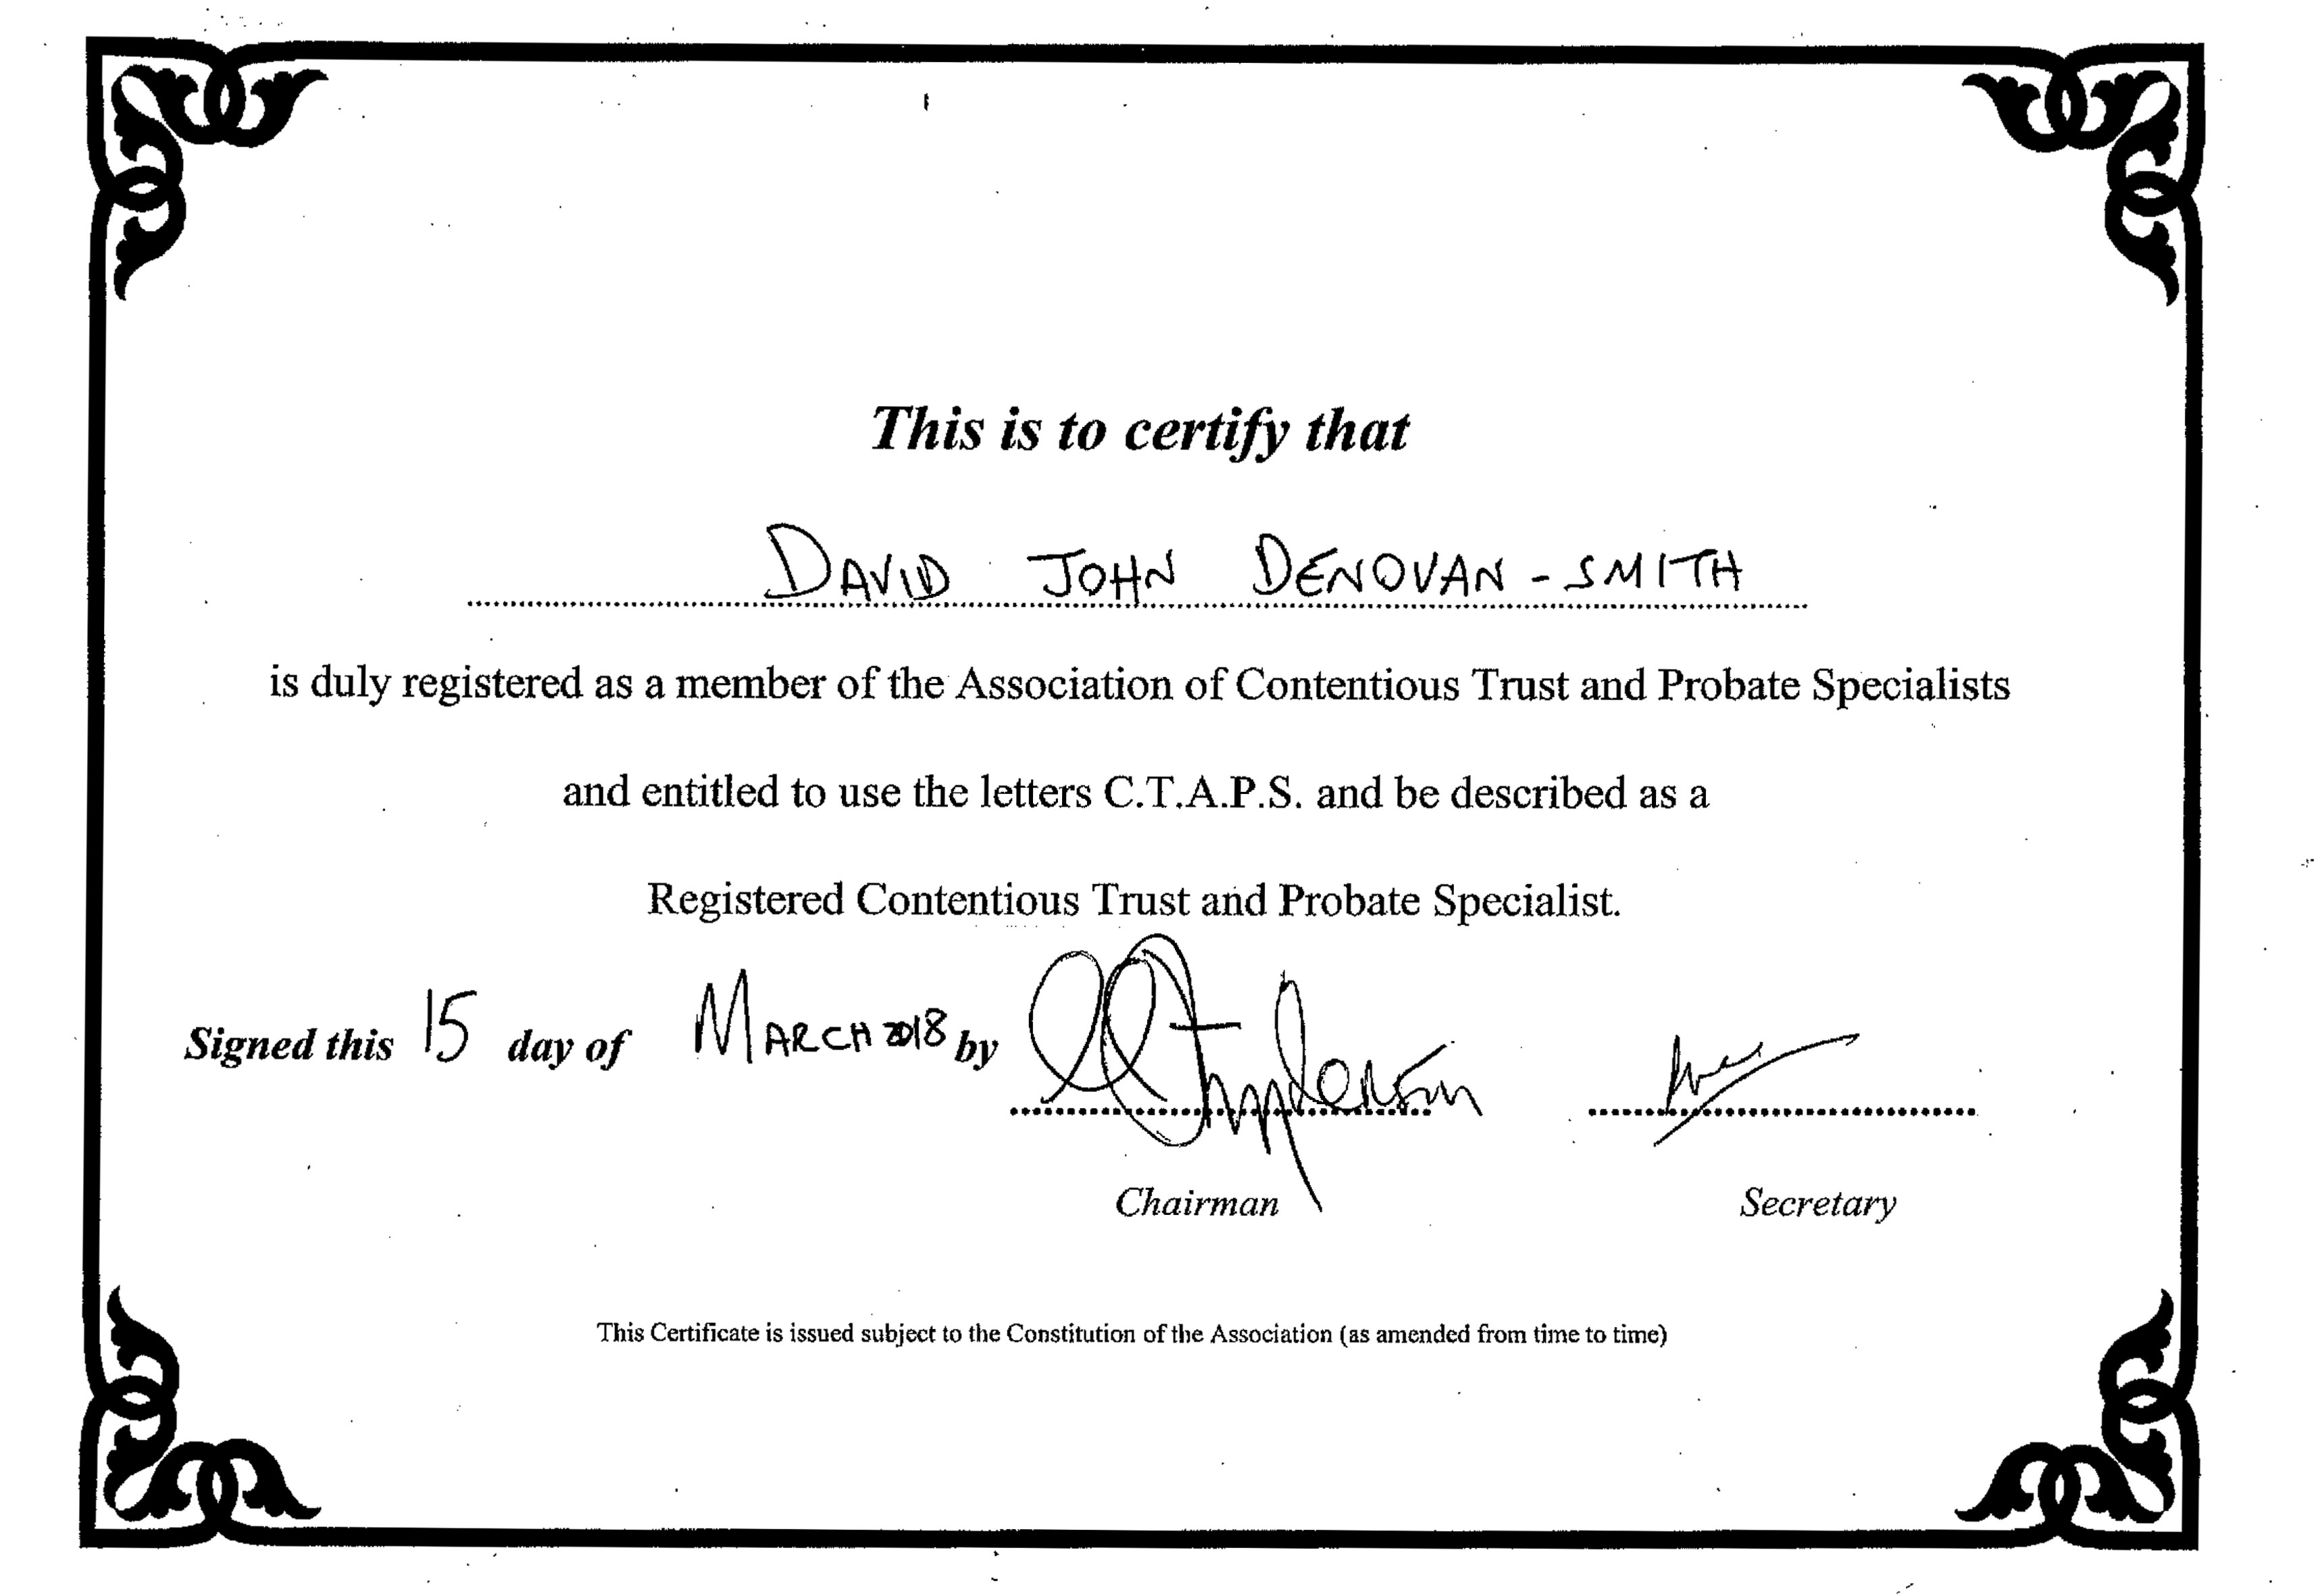 This is to certify that
DAVID JOHN DENOVAN-SMITH
is duly registered as a member of the Association of Contentious Trust and Probate Specialists
and entitled to use the letters C.T.A.P.S. and be described as a
Registered Contentious Trust and Probate Specialist.
Signed this 15 day of MARCH 2018 by
Chairman Secretary
This Certificate is issued subject to the Constitution of the Association (as amended from time to time)